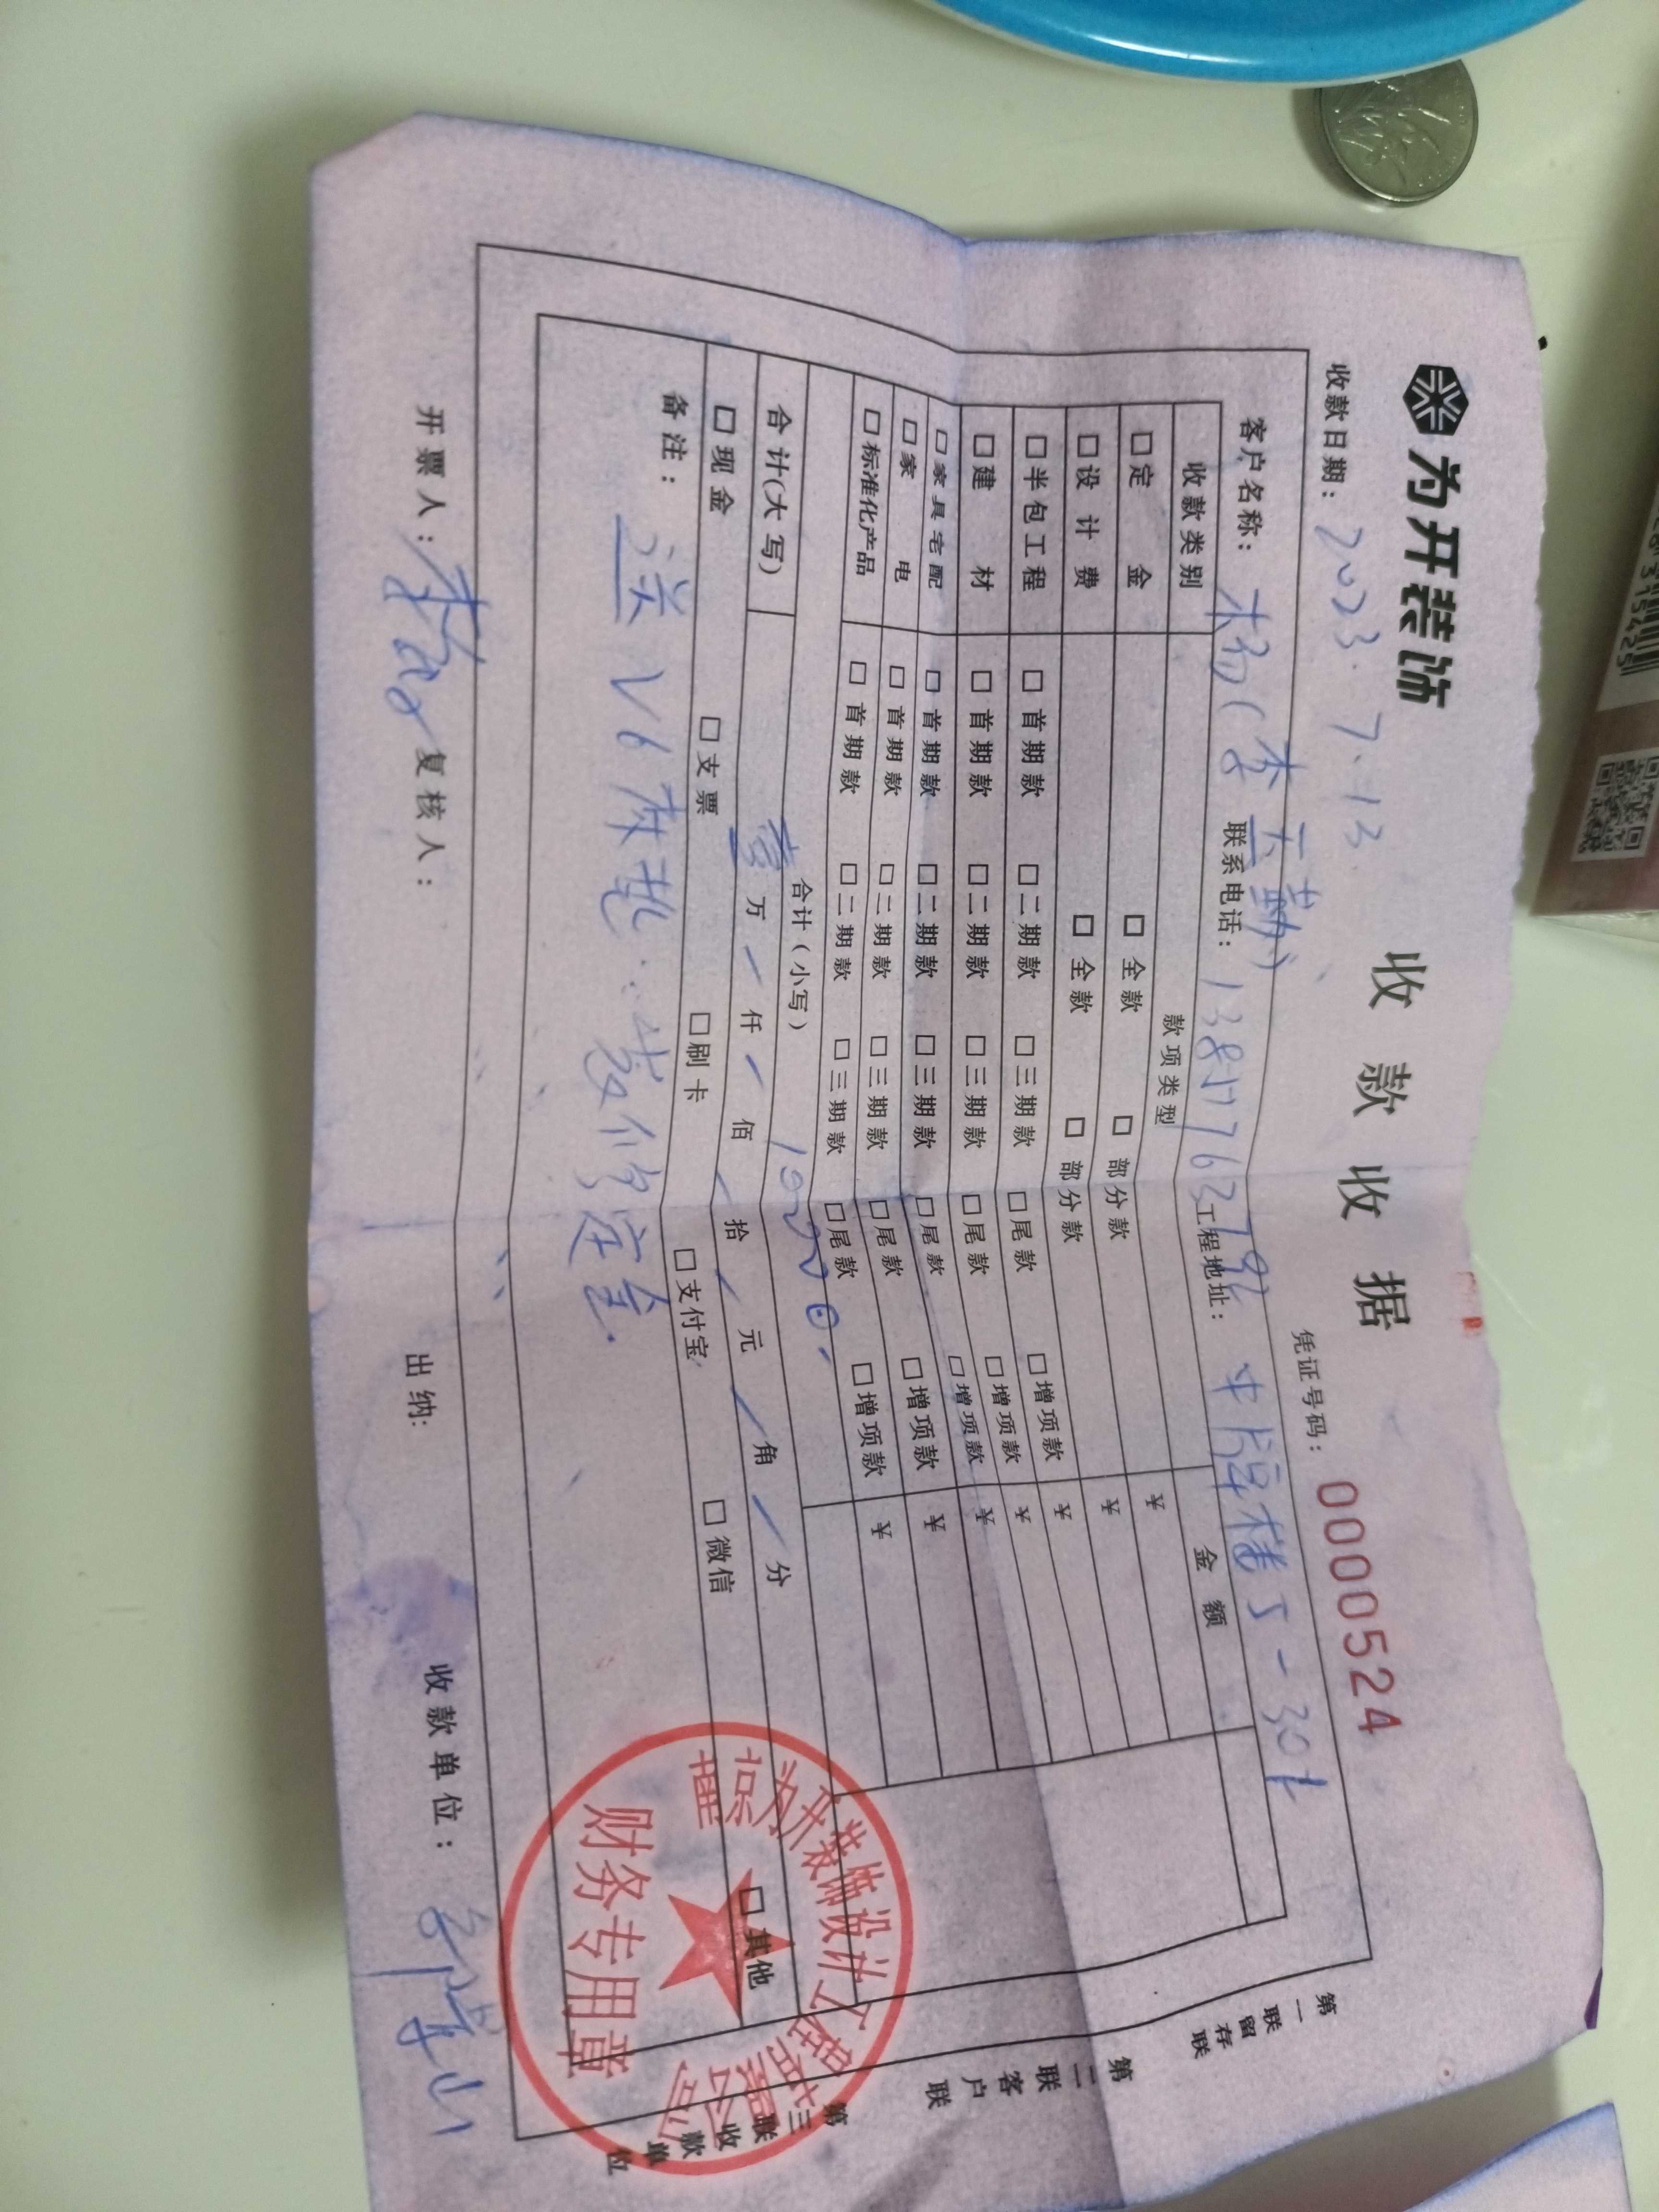 为开装饰
收款收据
收款日期：2023.7.13
凭证号码：0000524
客户名称：杨(李天勤) 联系电话： 工程地址：中院楼5-301
收款类别 款项类型 金额
□定金 □全款 □部分款 ¥
□设计费 □全款 □部分款 ¥
□半包工程 □首期款 □二期款 □三期款 □尾款 □增项款 ¥
□建材 □首期款 □二期款 □三期款 □尾款 □增项款 ¥
□家具宅配 □首期款 □二期款 □三期款 □尾款 □增项款 ¥
□家电 □首期款 □二期款 □三期款 □尾款 □增项款 ¥
□标准化产品 □首期款 □二期款 □三期款 □尾款 □增项款 ¥
合计（小写） 10000.
合计(大写) 壹万/仟/佰/拾/元/角/分
□现金 □支票 □刷卡 □支付宝 □微信 □其他
备注：送V6 装修定金.
开票人： 复核人： 出纳： 收款单位：
第一联留存联
第二联客户联
第三联收款单位
京为开装饰设计工程
公司
财务专用章